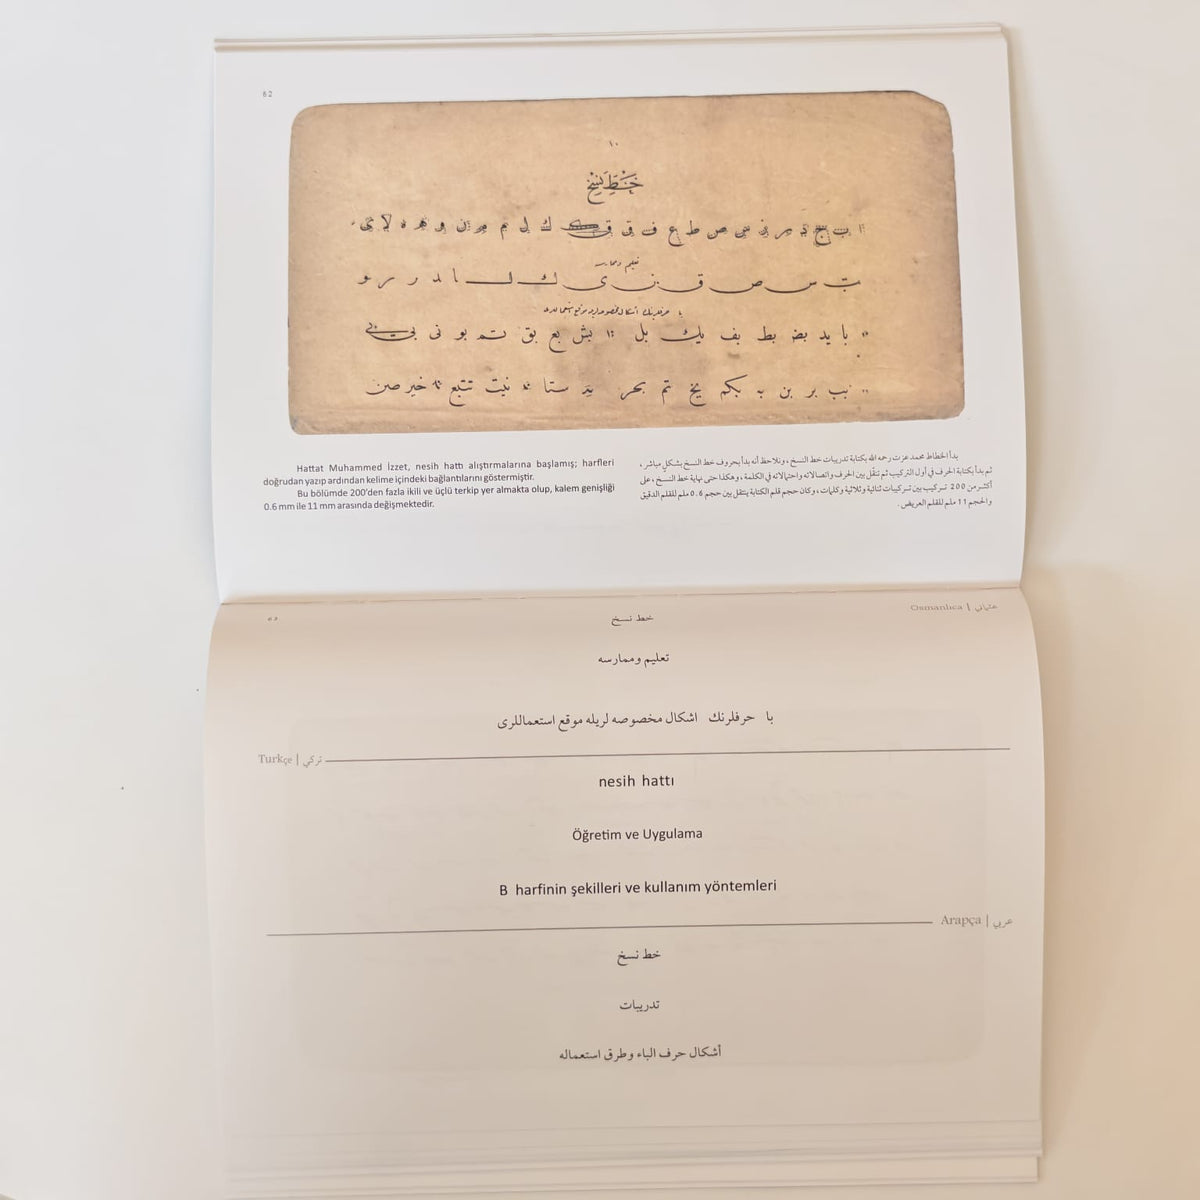 62
١٠
خط نسخ
تعليم وممارسه
با حرفلرنك اشكال مخصوصه لريله موقع استعماللرى
با يد بض بط بف يك بل
Hattat Muhammed İzzet, nesih hattı alıştırmalarına başlamış; harfleri
doğrudan yazıp ardından kelime içindeki bağlantılarını göstermiştir.
Bu bölümde 200'den fazla ikili ve üçlü terkip yer almakta olup, kalem genişliği
0.6 mm ile 11 mm arasında değişmektedir.
بدأ الخطاط محمد عزت رحمه الله بكتابة تدريبات خط النسخ ، ونلاحظ أنه بدأ بحروف خط النسخ بشكلٍ مباشر ،
ثم بدأ بكتابة الحرف في أول التركيب ثم تنقّل بين الحرف واتصالاته واحتمالاته في الكلمة ، وهكذا حتى نهاية خط النسخ ، على
أكثر من 200 تركيب بين تركيبات ثنائية وثلاثية وكلمات ، وكان حجم قلم الكتابة ينتقل بين حجم 0.6 ملم للقلم الدقيق
والحجم 11 ملم للقلم العريض .
63
Osmanlıca | عثماني
خط نسخ
تعليم وممارسه
با حرفلرنك اشكال مخصوصه لريله موقع استعماللرى
Turkçe | تركي
nesih hattı
Öğretim ve Uygulama
B harfinin şekilleri ve kullanım yöntemleri
Arapça | عربي
خط نسخ
تدريبات
أشكال حرف الباء وطرق استعماله